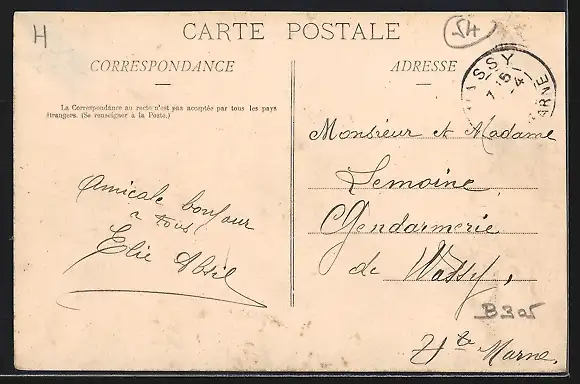 H
CARTE POSTALE
54
CORRESPONDANCE
ADRESSE
La Correspondance au recto n'est pas acceptée par tous les pays
étrangers. (Se renseigner à la Poste.)
Amicale bonjour
a tous
Elie Absil
WASSY
7 15
-4
MARNE
Monsieur et Madame
Lemoine
Gendarmerie
de Wassy,
B305
Hte Marne.